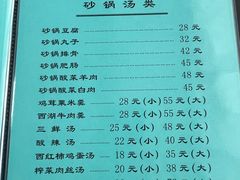 砂锅汤类
砂锅豆腐 28 元
砂锅丸子 32 元
砂锅排骨 42 元
砂锅肥肠 45 元
砂锅酸菜羊肉 48 元
砂锅酸菜白肉 45 元
鸡茸粟米羹 28 元(小) 55 元(大)
西湖牛肉羹 28 元(小) 55 元(大)
三鲜汤 25 元(小) 48 元(大)
酸辣汤 22 元(小) 40 元(大)
西红柿鸡蛋汤 18 元(小) 35 元(大)
榨菜肉丝汤 20 元(小) 38 元(大)